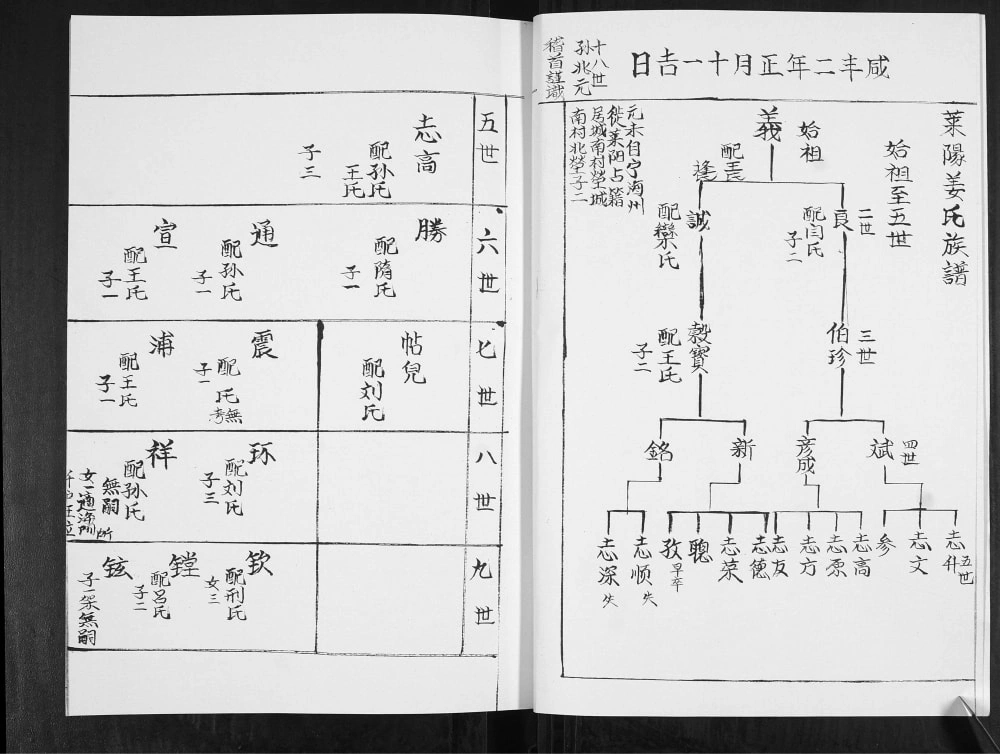 莱陽姜氏族譜
始祖至五世
咸丰二年正月十一吉日
十八世
孙兆元
稽首謹識
始祖
義
配王氏
元末自宁海州
徙莱阳占籍
居城南村塋城
南村北塋子二
二世
良
配闫氏
子二
誠
配欒氏
三世
伯珍
穀寶
配王氏
子二
四世
斌
彦成
新
銘
五世
志升
志文
参
志高
志原
志方
志友
志德
志荣
聰
孜
早卒
志顺
失
志深
失
五世
志高
配孙氏
王氏
子三
六世
勝
配隋氏
子一
通
配孙氏
子一
宣
配王氏
子一
七世
帖兒
配刘氏
震
配 氏
無考
子一
浦
配王氏
子一
八世
环
配刘氏
子三
祥
配孙氏
無嗣
女一適
九世
欽
配刑氏
女三
鏜
配吕氏
子二
鉉
子一架無嗣